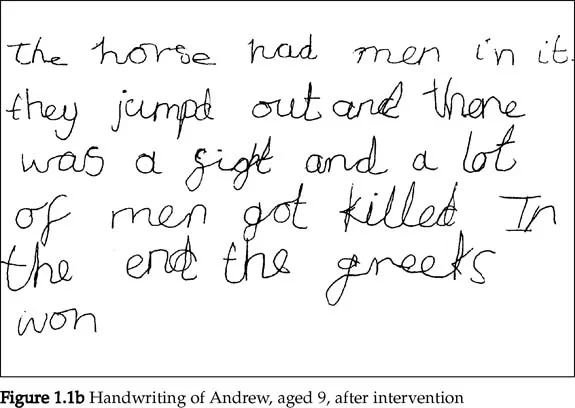 the horse had men in it.
they jumpd out and there
was a fight and a lot
of men got killed In
the end the greeks
won
Figure 1.1b Handwriting of Andrew, aged 9, after intervention